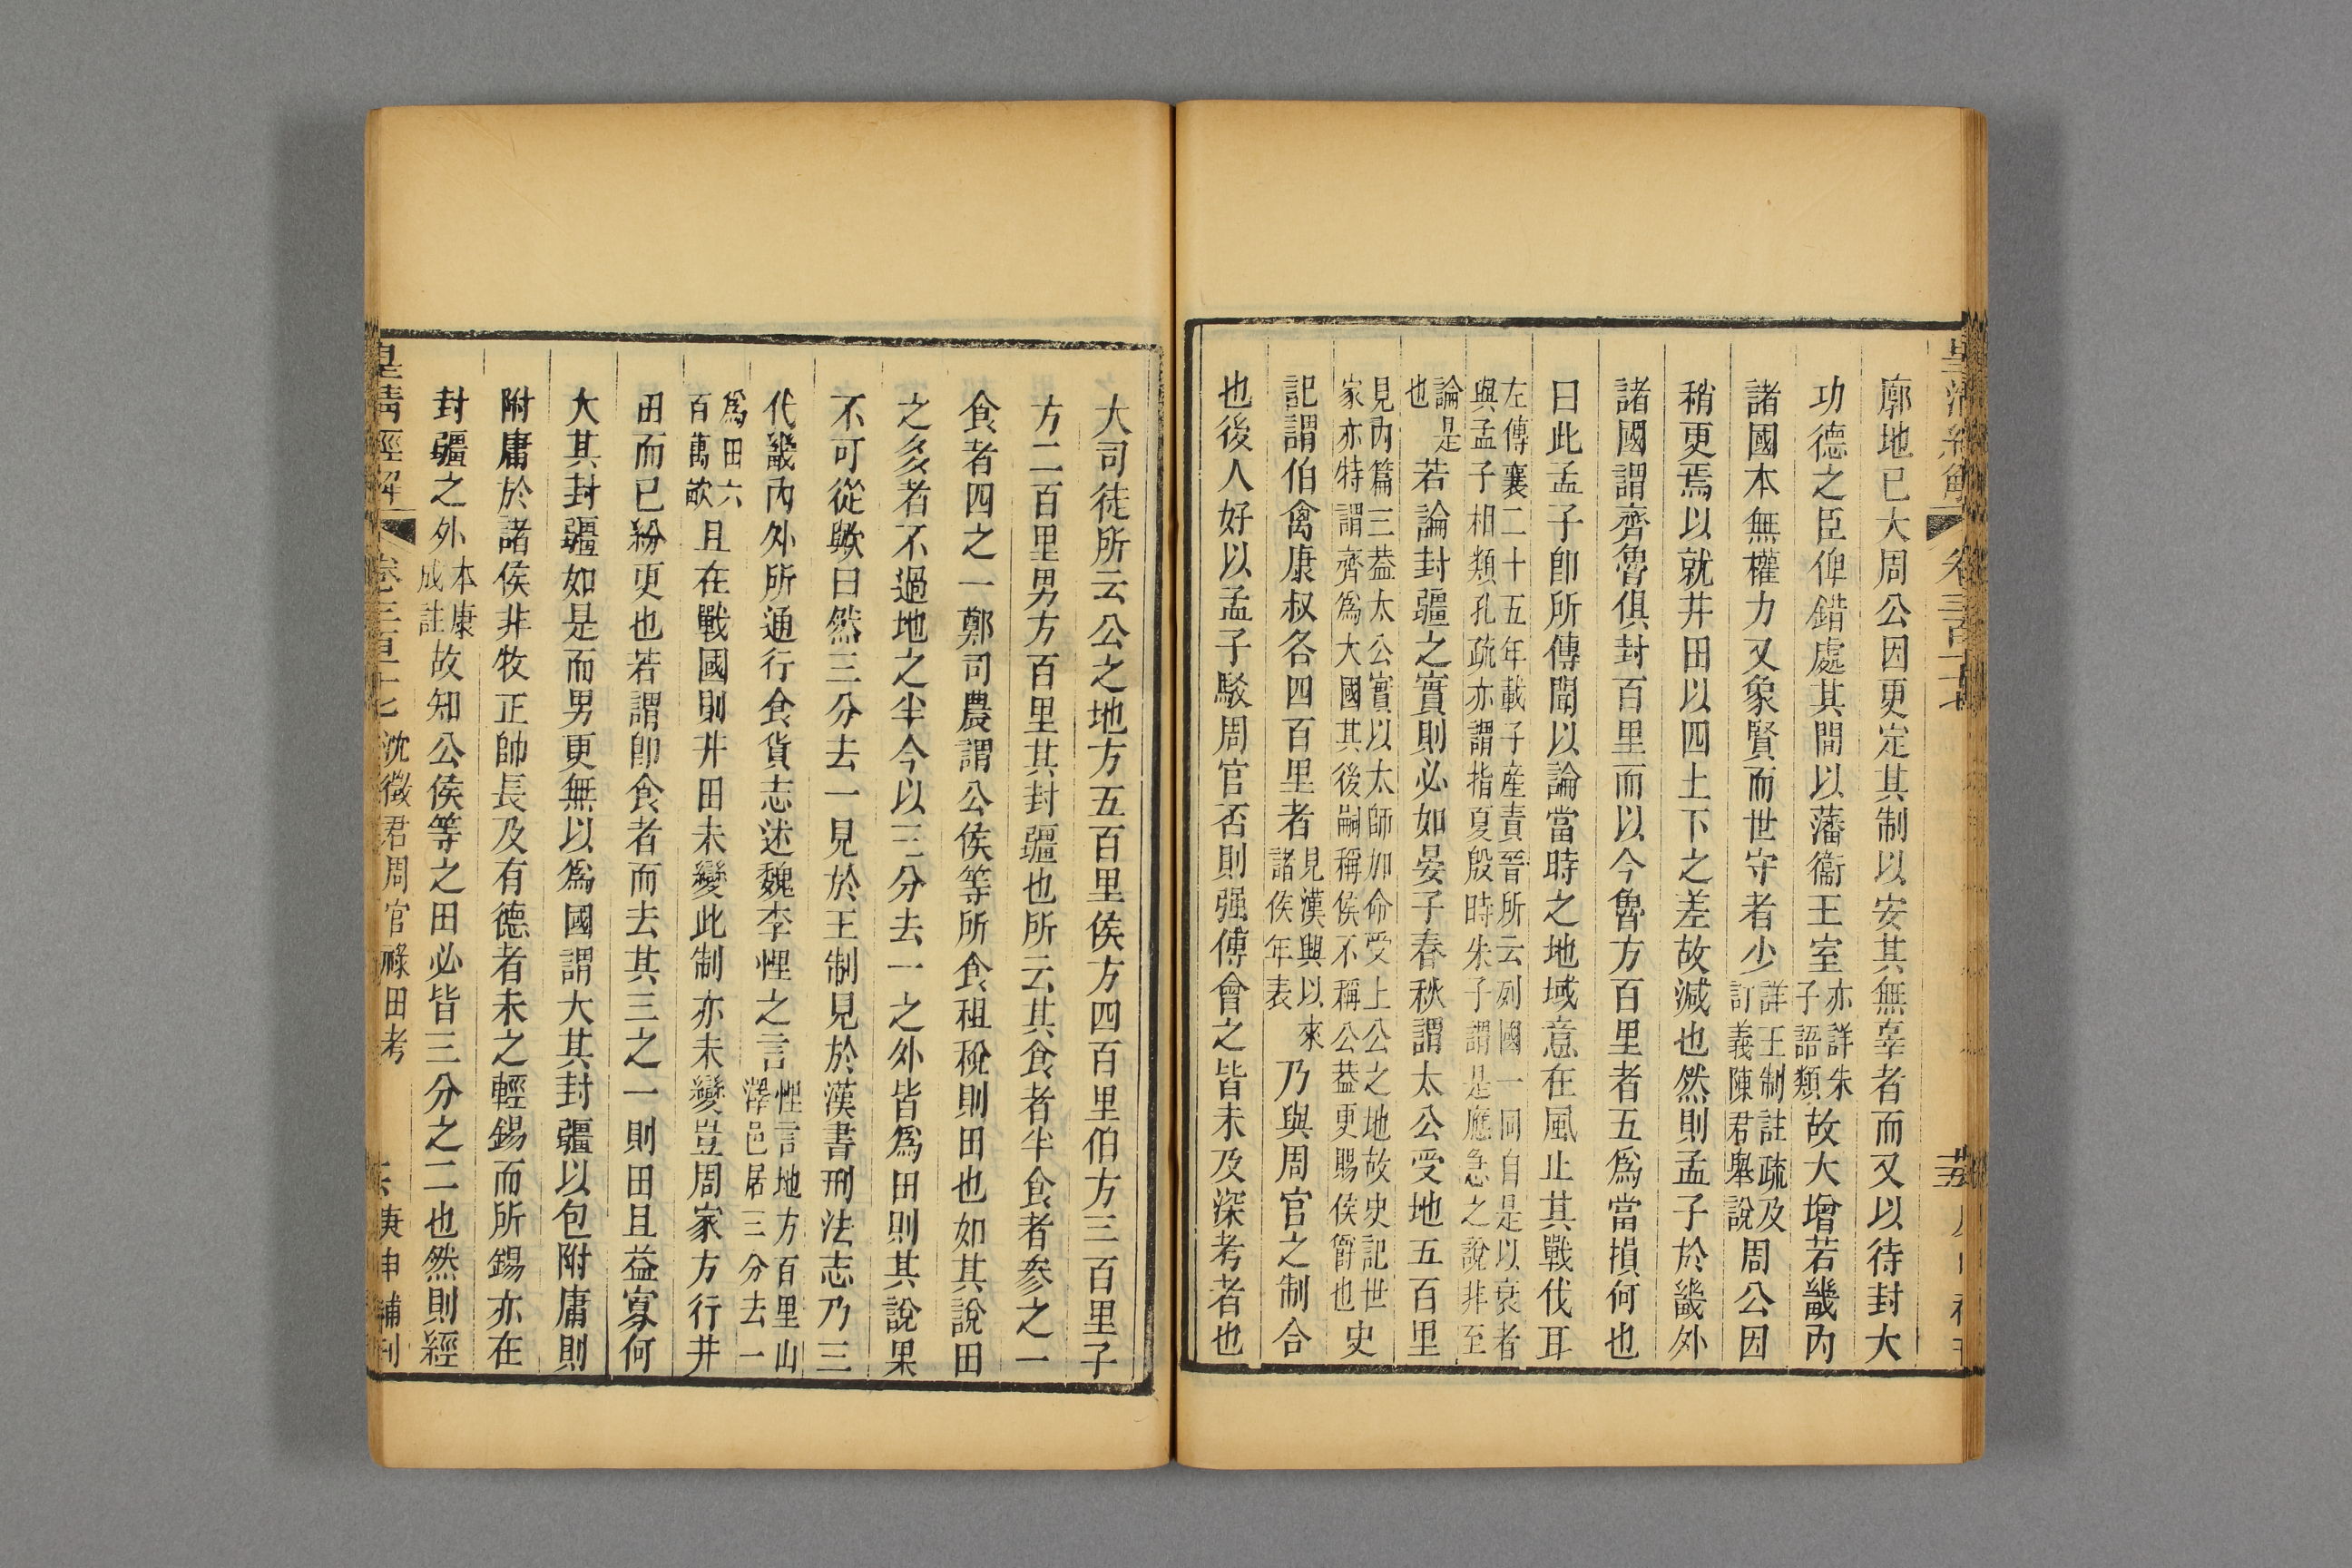 廓地已大周公因更定其制以安其無辜者而又以待封大
功德之臣俾錯處其間以藩衞王室亦詳朱子語類故大增若畿內
諸國本無權力又象賢而世守者少詳王制註疏及訂義陳君舉說周公因
稍更焉以就井田以四土下之差故減也然則孟子於畿外
諸國謂齊魯俱封百里而以今魯方百里者五爲當損何也
曰此孟子卽所傳聞以論當時之地域意在風止其戰伐耳
左傳襄二十五年載子產責晉所云列國一同自是以衰者與孟子相類孔疏亦謂指夏殷時朱子謂是應急之說非至
論是也若論封疆之實則必如晏子春秋謂太公受地五百里
見內篇三葢太公實以太師加命受上公之地故史記世家亦特謂齊爲大國其後嗣稱侯不稱公葢更賜侯爵也史
記謂伯禽康叔各四百里者見漢興以來諸侯年表乃與周官之制合
也後人好以孟子駁周官否則强傅會之皆未及深考者也
大司徒所云公之地方五百里侯方四百里伯方三百里子
方二百里男方百里其封疆也所云其食者半食者參之一
食者四之一鄭司農謂公侯等所食租稅則田也如其說田
之多者不過地之半今以三分去一之外皆爲田則其說果
不可從歟曰然三分去一見於王制見於漢書刑法志乃三
代畿內外所通行食貨志述魏李悝之言悝言地方百里山澤邑居三分去一
爲田六百萬畝且在戰國則井田未變此制亦未變豈周家方行井
田而已紛更也若謂卽食者而去其三之一則田且益寡何
大其封疆如是而男更無以爲國謂大其封疆以包附庸則
附庸於諸侯非牧正帥長及有德者未之輕錫而所錫亦在
封疆之外本康成註故知公侯等之田必皆三分之二也然則經
皇淸經解 卷三百十七 沈徵君周官祿田考 庚申補刊